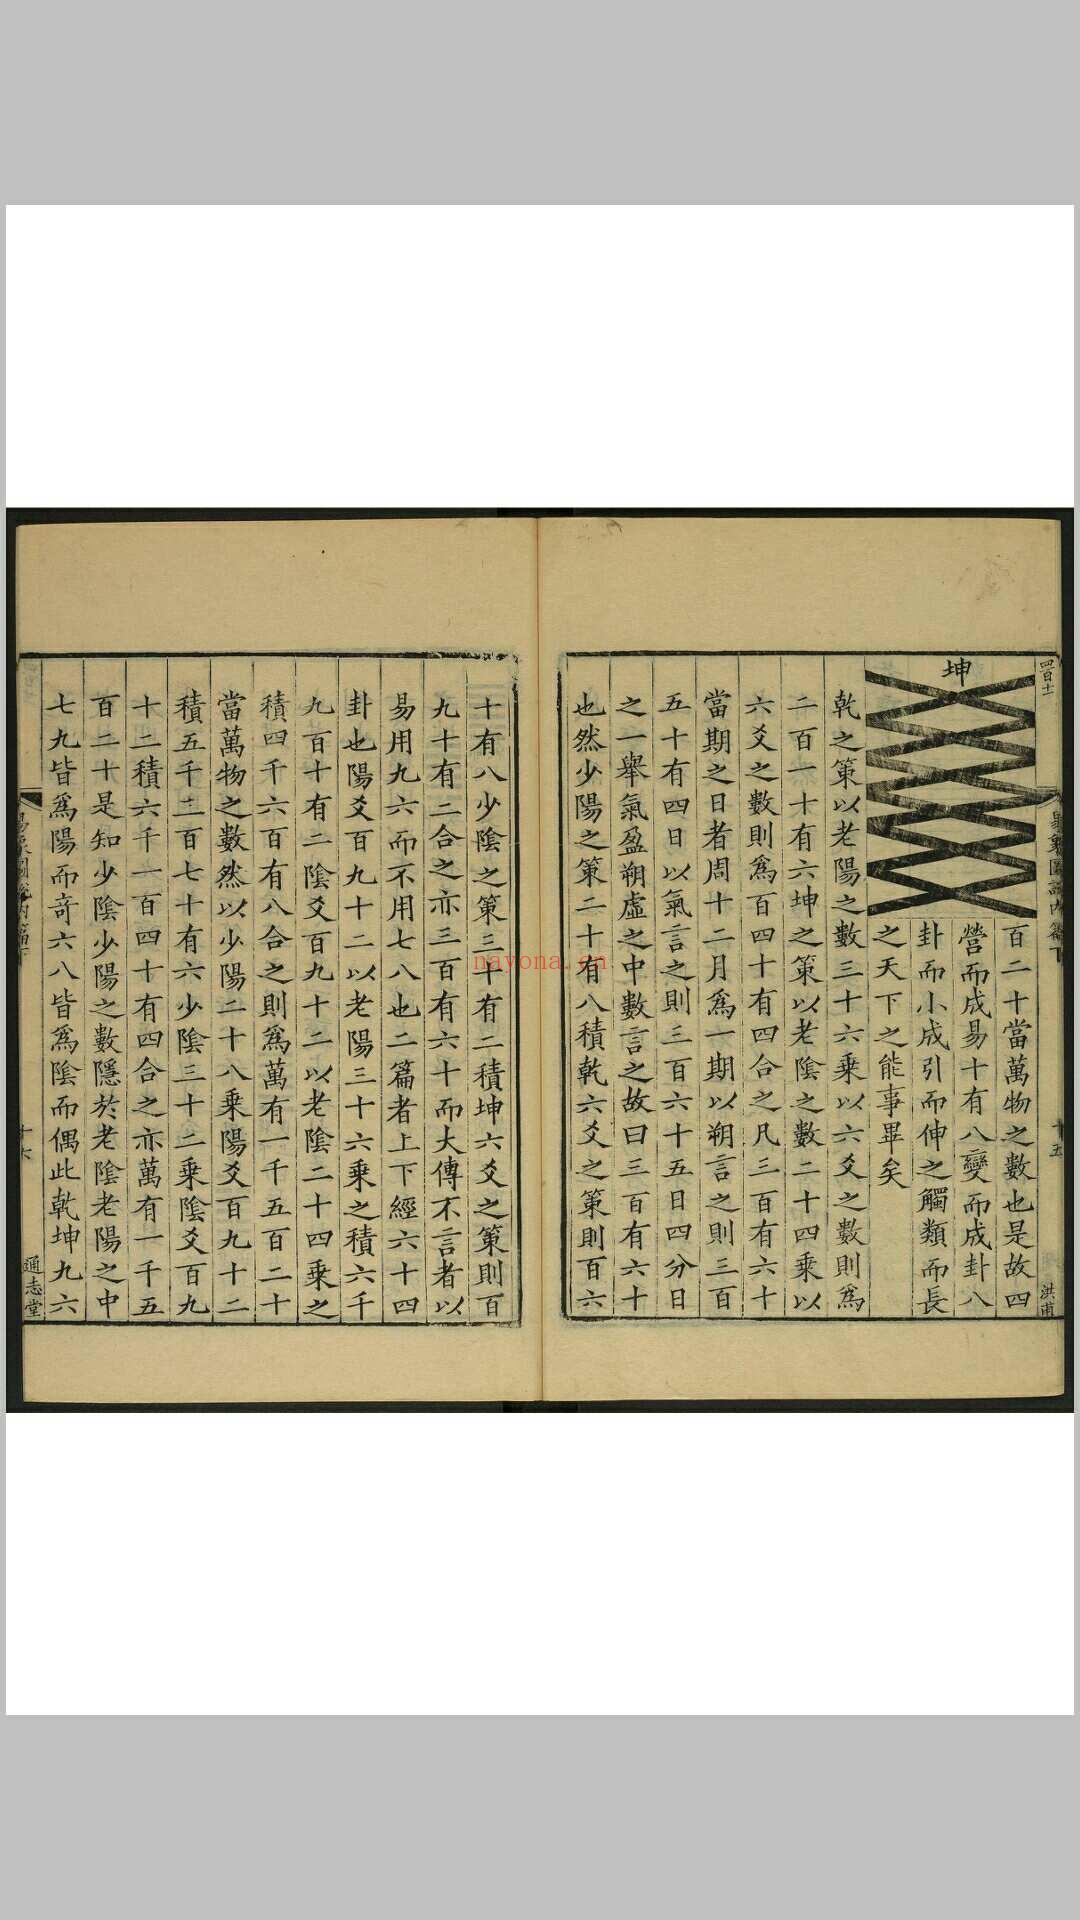 四百十一
坤
百二十當萬物之數也是故四
營而成易十有八變而成卦八
卦而小成引而伸之觸類而長
之天下之能事畢矣
乾之策以老陽之數三十六乗以六爻之數則爲
二百一十有六坤之策以老陰之數二十四乗以
六爻之數則爲百四十有四合之凡三百有六十
當期之日者周十二月爲一期以朔言之則三百
五十有四日以氣言之則三百六十五日四分日
之一舉氣盈朔虛之中數言之故曰三百有六十
也然少陽之策二十有八積乾六爻之策則百六
十有八少陰之策三十有二積坤六爻之策則百
九十有二合之亦三百有六十而大傳不言者以
易用九六而不用七八也二篇者上下經六十四
卦也陽爻百九十二以老陽三十六乗之積六千
九百十有二陰爻百九十二以老陰二十四乗之
積四千六百有八合之則爲萬有一千五百二十
當萬物之數然以少陽二十八乗陽爻百九十二
積五千三百七十有六少陰三十二乗陰爻百九
十二積六千一百四十有四合之亦萬有一千五
百二十是知少陰少陽之數隱於老陰老陽之中
七九皆爲陽而奇六八皆爲陰而偶此乾坤九六
易象圖說內篇下
十五
洪甫
十六
通志堂
nayona.cn